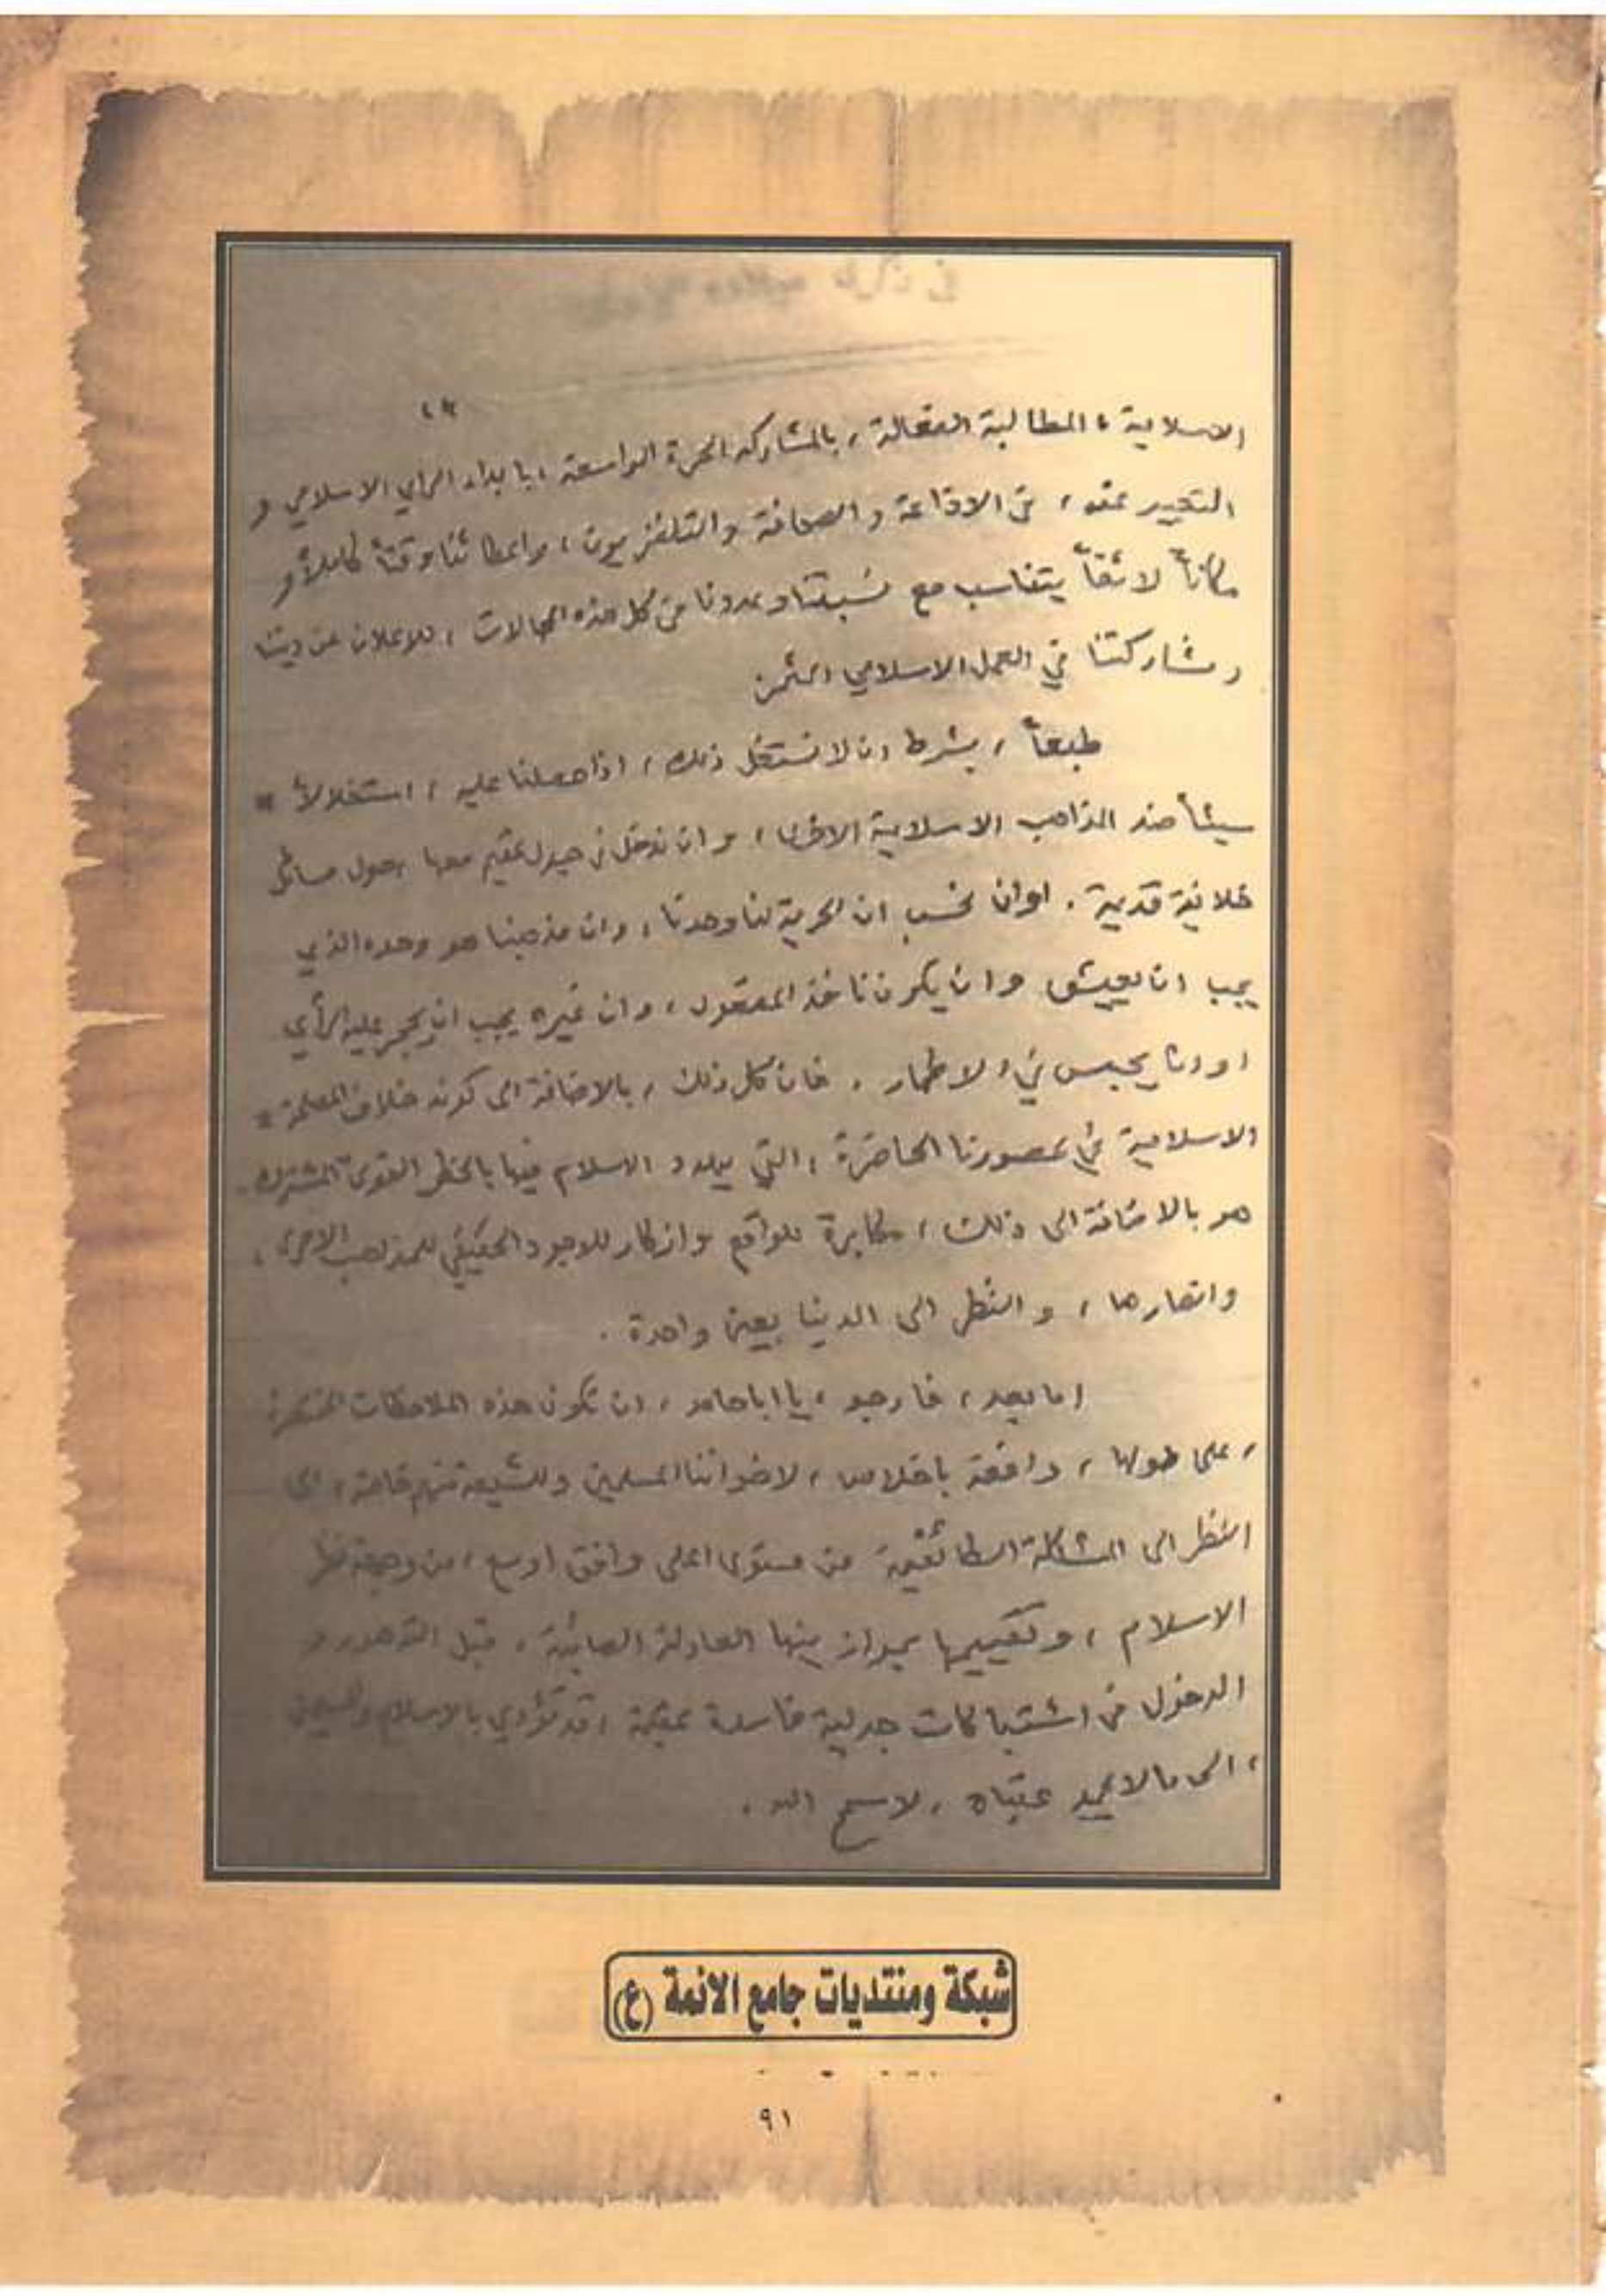 في ذكرى
الاسلامية ، المطالبة الفعالة ، بالمشاركة الحرة الواسعة ، بابداء الرأي الاسلامي و
التعبير عنه ، في الاذاعة والصحافة والتلفزيون ، واعطائنا وقتاً كاملاً و
مكاناً لائقاً يتناسب مع نسبتنا وعددنا في كل هذه المجالات ، للاعلان عن ديننا
ومشاركتنا في العمل الاسلامي المثمر
طبعاً ، بشرط ان لا نستغل ذلك ، اذا حصلنا عليه ، استغلالاً
سيئاً ضد المذاهب الاسلامية الاخرى ، وان ندخل في جدل عقيم معها حول مسائل
خلافية قديمة . او ان نحسب ان الحرية لنا وحدنا ، وان مذهبنا هو وحده الذي
يجب ان يعيش وان يكون نافذ المفعول ، وان غيره يجب ان يحجر عليه الرأي
او ان يحبس في الاطمار . فان كل ذلك ، بالاضافة الى كونه خلاف المصلحة
الاسلامية في عصورنا الحاضرة ، التي يهدد الاسلام فيها بالخطر القوي المشترك
هو بالاضافة الى ذلك ، مكابرة للواقع وانكار للوجود الحقيقي للمذاهب الاخرى ،
وانصارها ، والنظر الى الدنيا بعين واحدة .
اما بعد ، فارجو ، يا ابا حامد ، ان تكون هذه الملاحظات المختصرة
، على طولها ، دافعة باخلاص ، لاخواننا المسلمين وللشيعة منهم خاصة ، الى
النظر الى المشكلة الطائفية من مستوى اعلى وافق اوسع ، من وجهة نظر
الاسلام ، وتقييمها بموازينها العادلة الصائبة ، قبل التدهور و
الدخول في اشتباكات جدلية فاسدة عقيمة ، قد تؤدي بالاسلام والمسلمين
، الى ما لا يحمد عقباه ، لا سمح الله .
شبكة ومنتديات جامع الائمة (ع)
٩١